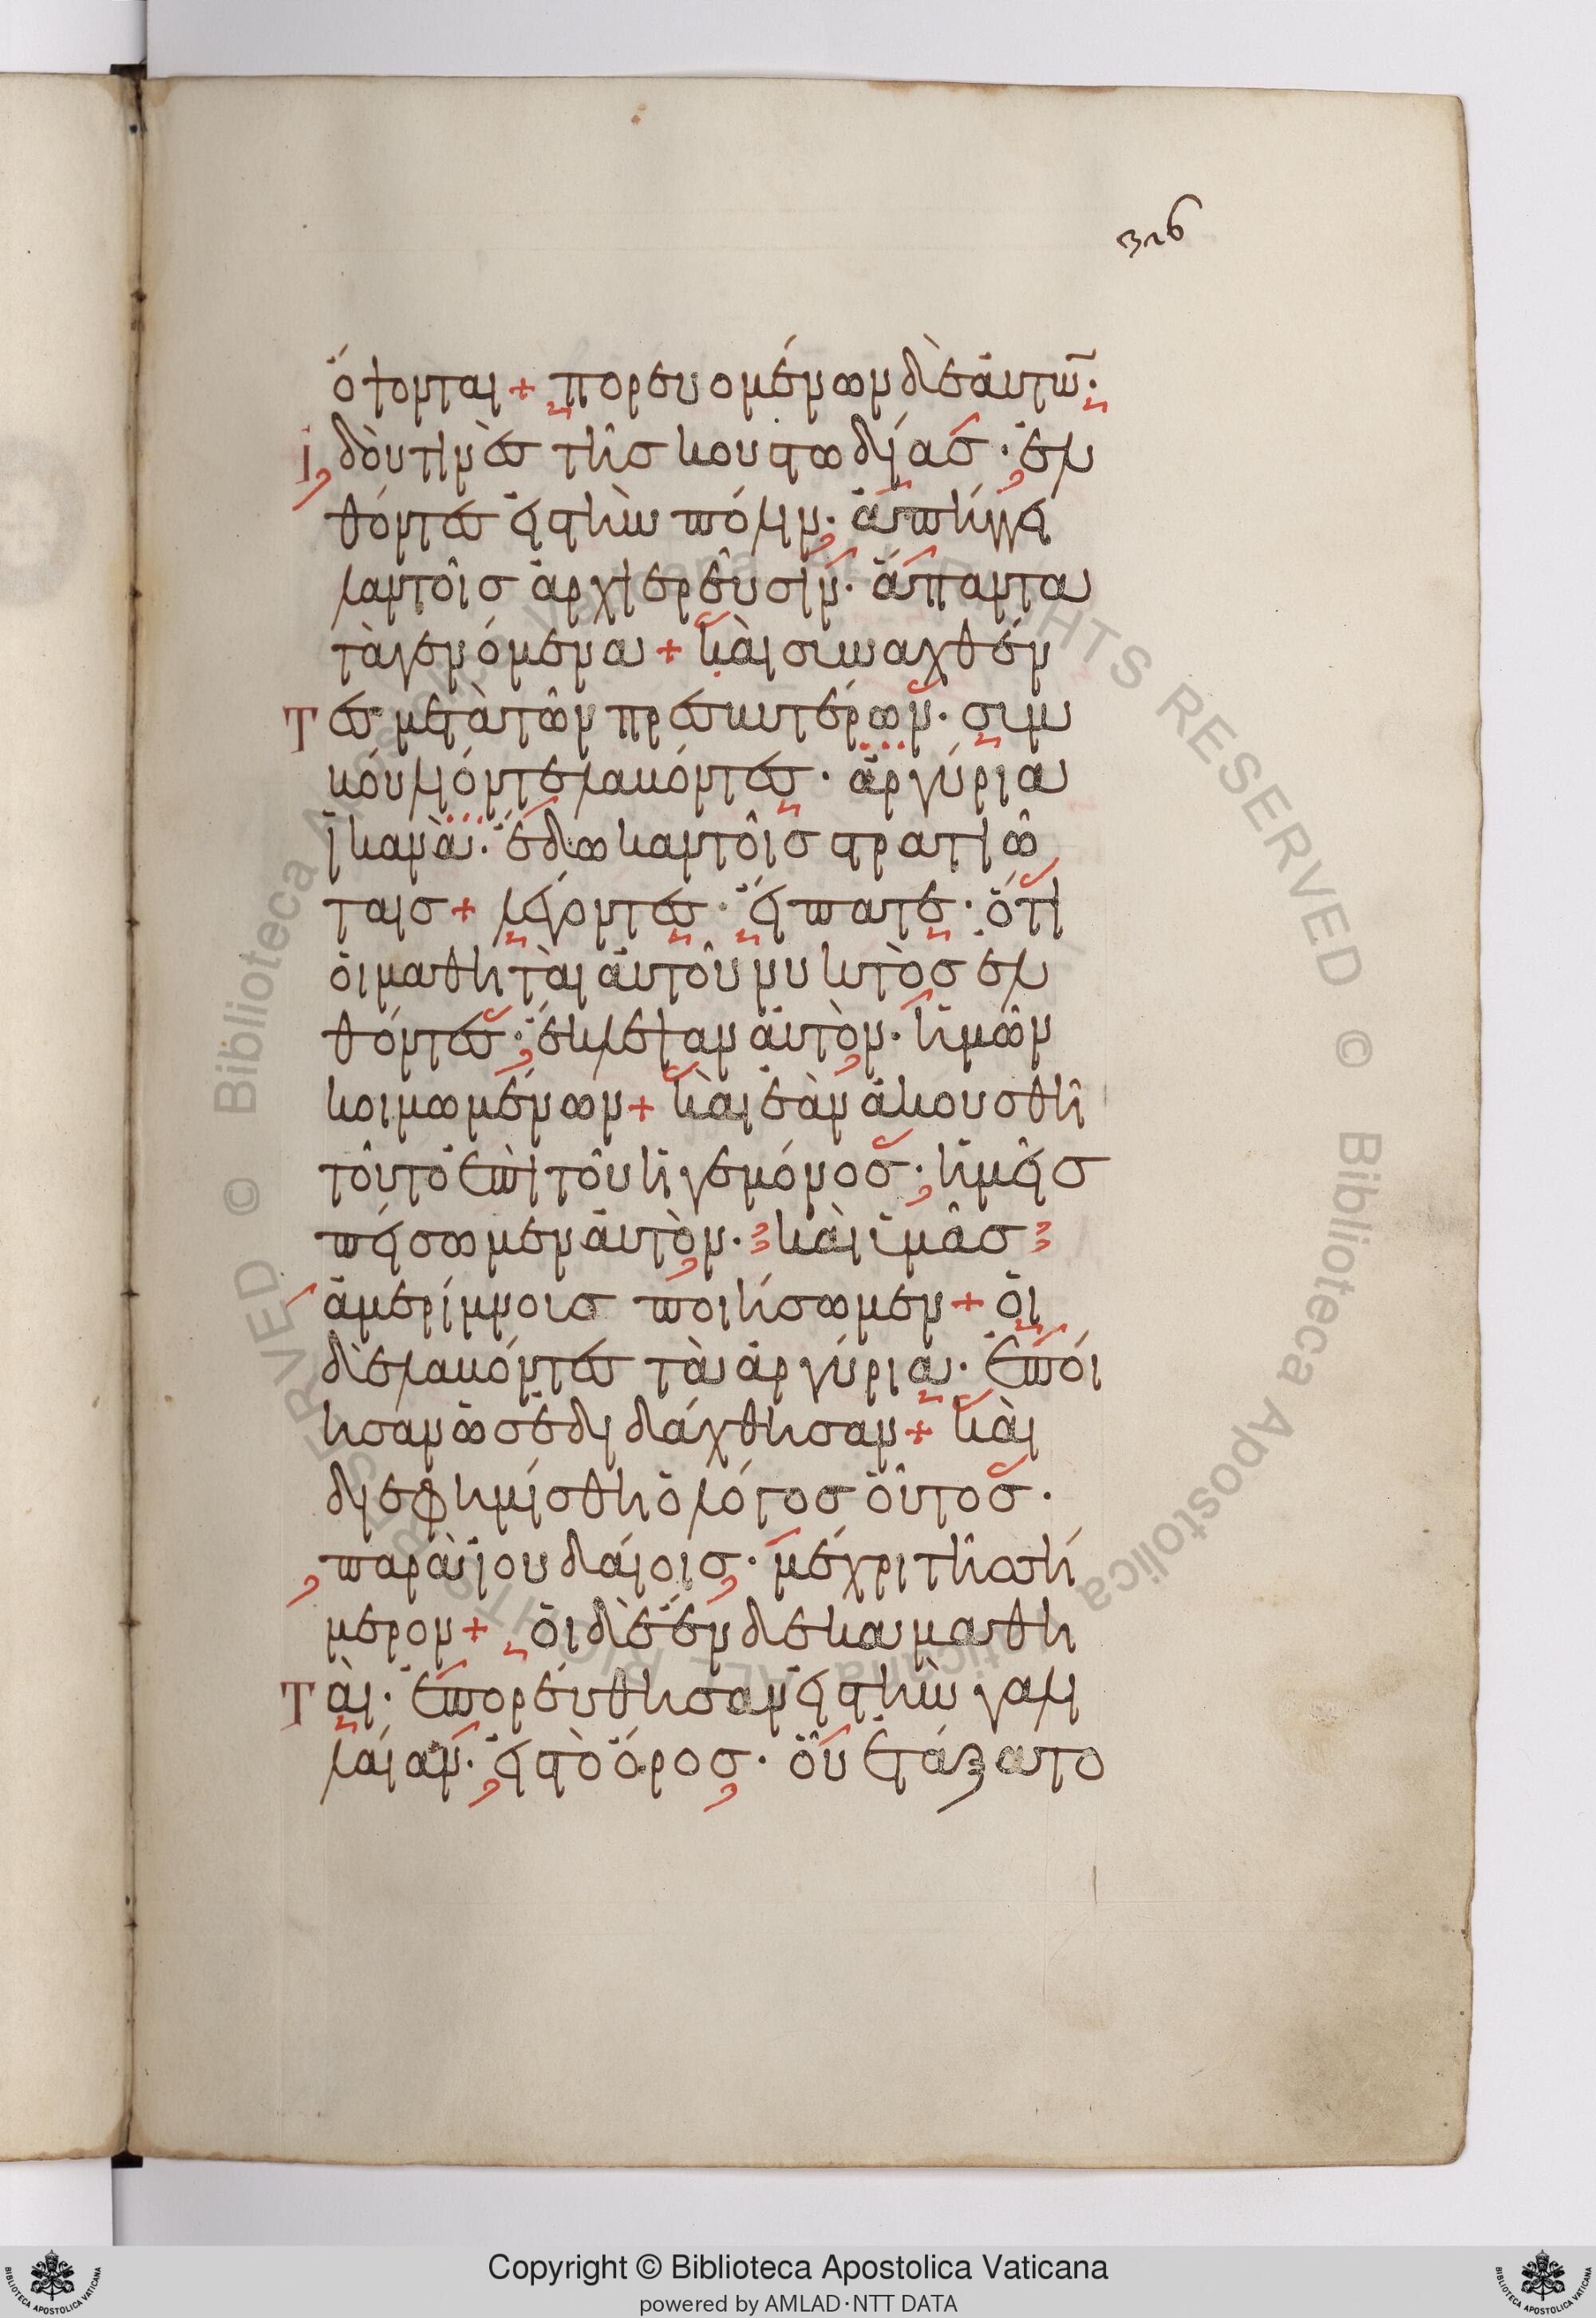 326
ὄψονται + πορευομένων δὲ αὐτῶ·
Ἰδού τινὲς τῆς κουστωδίας· ἐλ
θόντες εἰς τὴν πόλιν· ἀπήγγει
λαν τοῖς ἀρχιερεῦσιν· ἅπαντα
τὰ γενόμενα + καὶ συναχθέν
Τες μετὰ τῶν πρεσβυτέρων· συμ
βούλιόν τε λαβόντες· ἀργύρια
ἱκανὰ· ἔδωκαν τοῖς στρατιώ
ταις + λέγοντες· εἴπατε· ὅτι
οἱ μαθηταὶ αὐτοῦ νυκτὸς ἐλ
θόντες· ἔκλεψαν αὐτὸν· ἡμῶν
κοιμωμένων + καὶ ἐὰν ἀκουσθῆ
τοῦτο ἐπὶ τοῦ ἡγεμόνος· ἡμεῖς
πείσωμεν αὐτὸν· καὶ ὑμᾶς
ἀμερίμνους ποιήσωμεν + οἱ
δὲ λαβόντες τὰ ἀργύρια· ἐποί
ησαν ὡς ἐδιδάχθησαν + καὶ
διεφημίσθη ὁ λόγος οὗτος·
παρὰ ἰουδαίοις· μέχρι τῆς σή
μερον + οἱ δὲ ἕνδεκα μαθη
Ταὶ· ἐπορεύθησαν εἰς τὴν γαλι
λαίαν· εἰς τὸ ὄρος· οὗ ἐτάξατο
© Biblioteca Apostolica Vaticana ALL RIGHTS RESERVED © Biblioteca Apostolica Vaticana ALL RIGHTS RESERVED
Copyright © Biblioteca Apostolica Vaticana
powered by AMLAD·NTT DATA
BIBLIOTECA APOSTOLICA VATICANA
BIBLIOTECA APOSTOLICA VATICANA